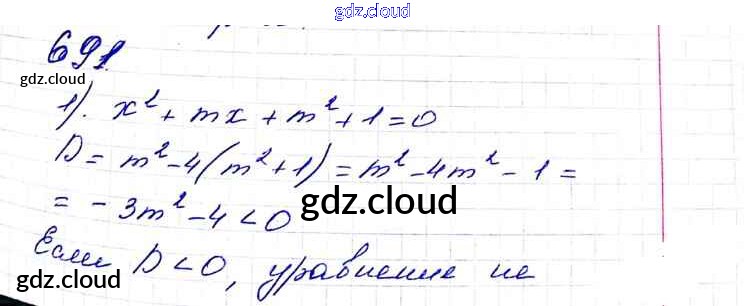 gdz.cloud
691.
gdz.cloud
1). x² + mx + m² + 1 = 0
D = m² - 4(m² + 1) = m² - 4m² - 1 =
= - 3m² - 4 < 0
gdz.cloud
Если D < 0, уравнение не
gdz.cloud